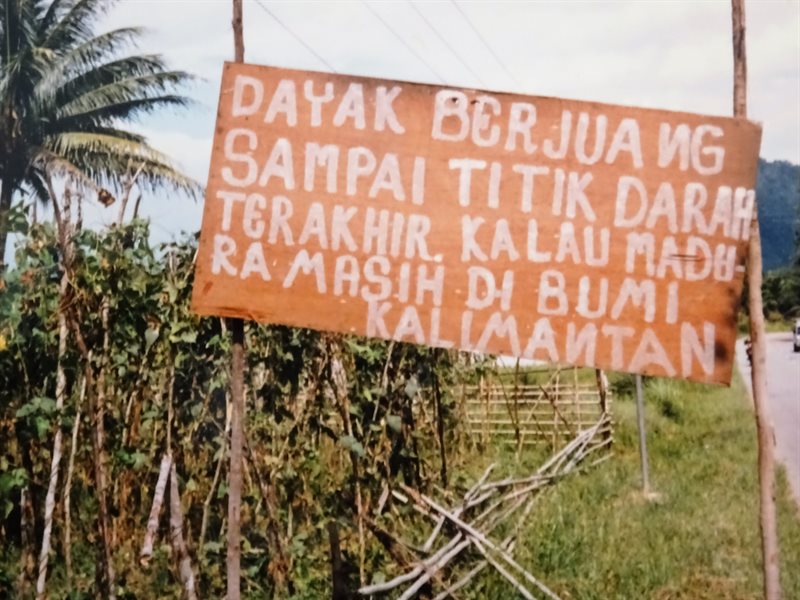 DAYAK BERJUANG
SAMPAI TITIK DARAH
TERAKHIR. KALAU MADU-
RA MASIH DI BUMI
KALIMANTAN